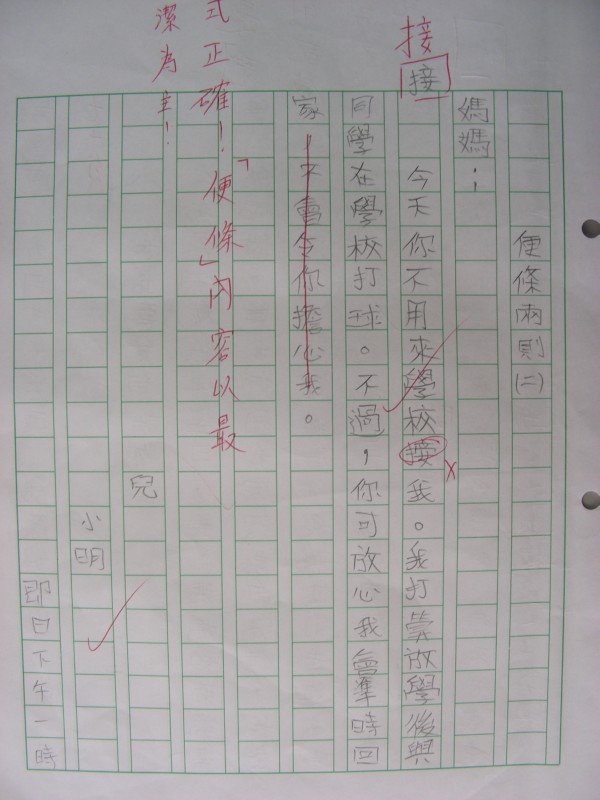 便條兩則(二)
媽媽：
今天你不用來學校接我。我打算放學後與
同學在學校打球。不過，你可放心我會準時回
家不會令你擔心我。
兒
小明
即日下午一時
接
接
式正確！「便條」內容以最
潔為主！